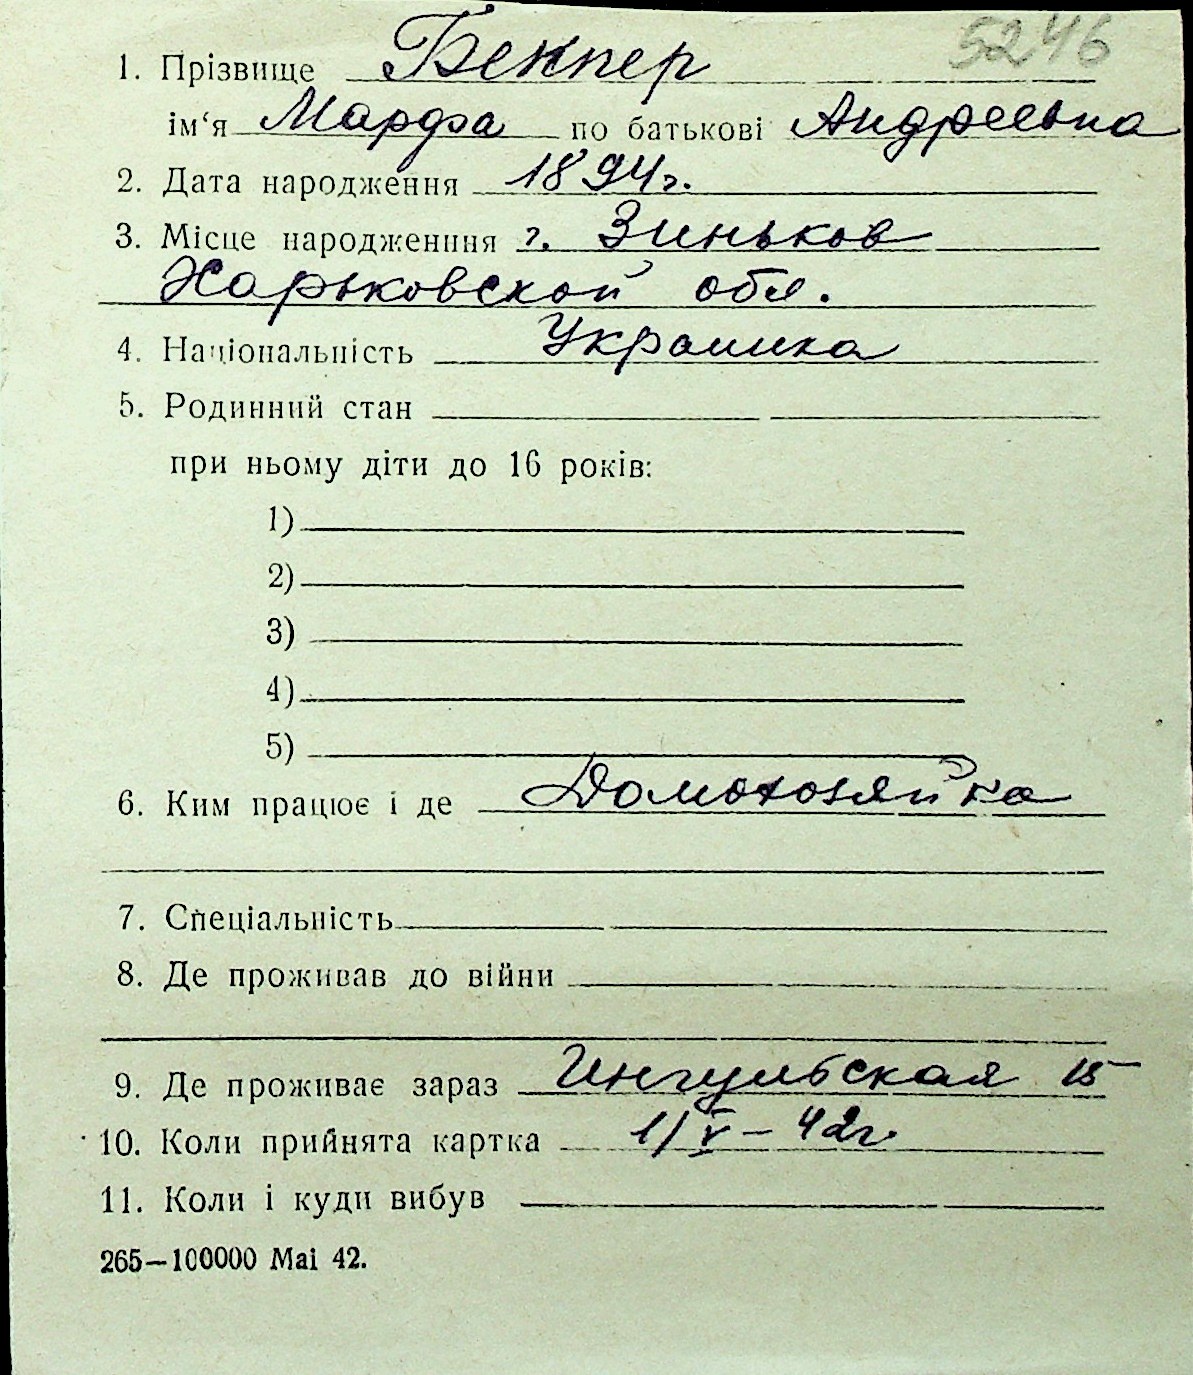 5246
1. Прізвище Бекпер
ім‘я Марфа по батькові Андреевна
2. Дата народження 1894 г.
3. Місце народженння г. Зиньков
Харьковской обл.
4. Національність Украинка
5. Родинний стан
при ньому діти до 16 років:
1)
2)
3)
4)
5)
6. Ким працює і де Домохозяйка
7. Спеціальність
8. Де проживав до війни
9. Де проживає зараз Ингульская 15
10. Коли прийнята картка 1/V – 42г.
11. Коли і куди вибув
265—100000 Mai 42.